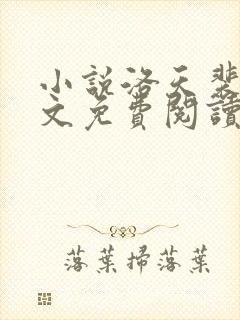 小說洛天斐
文免費閱讀
落葉掃落葉